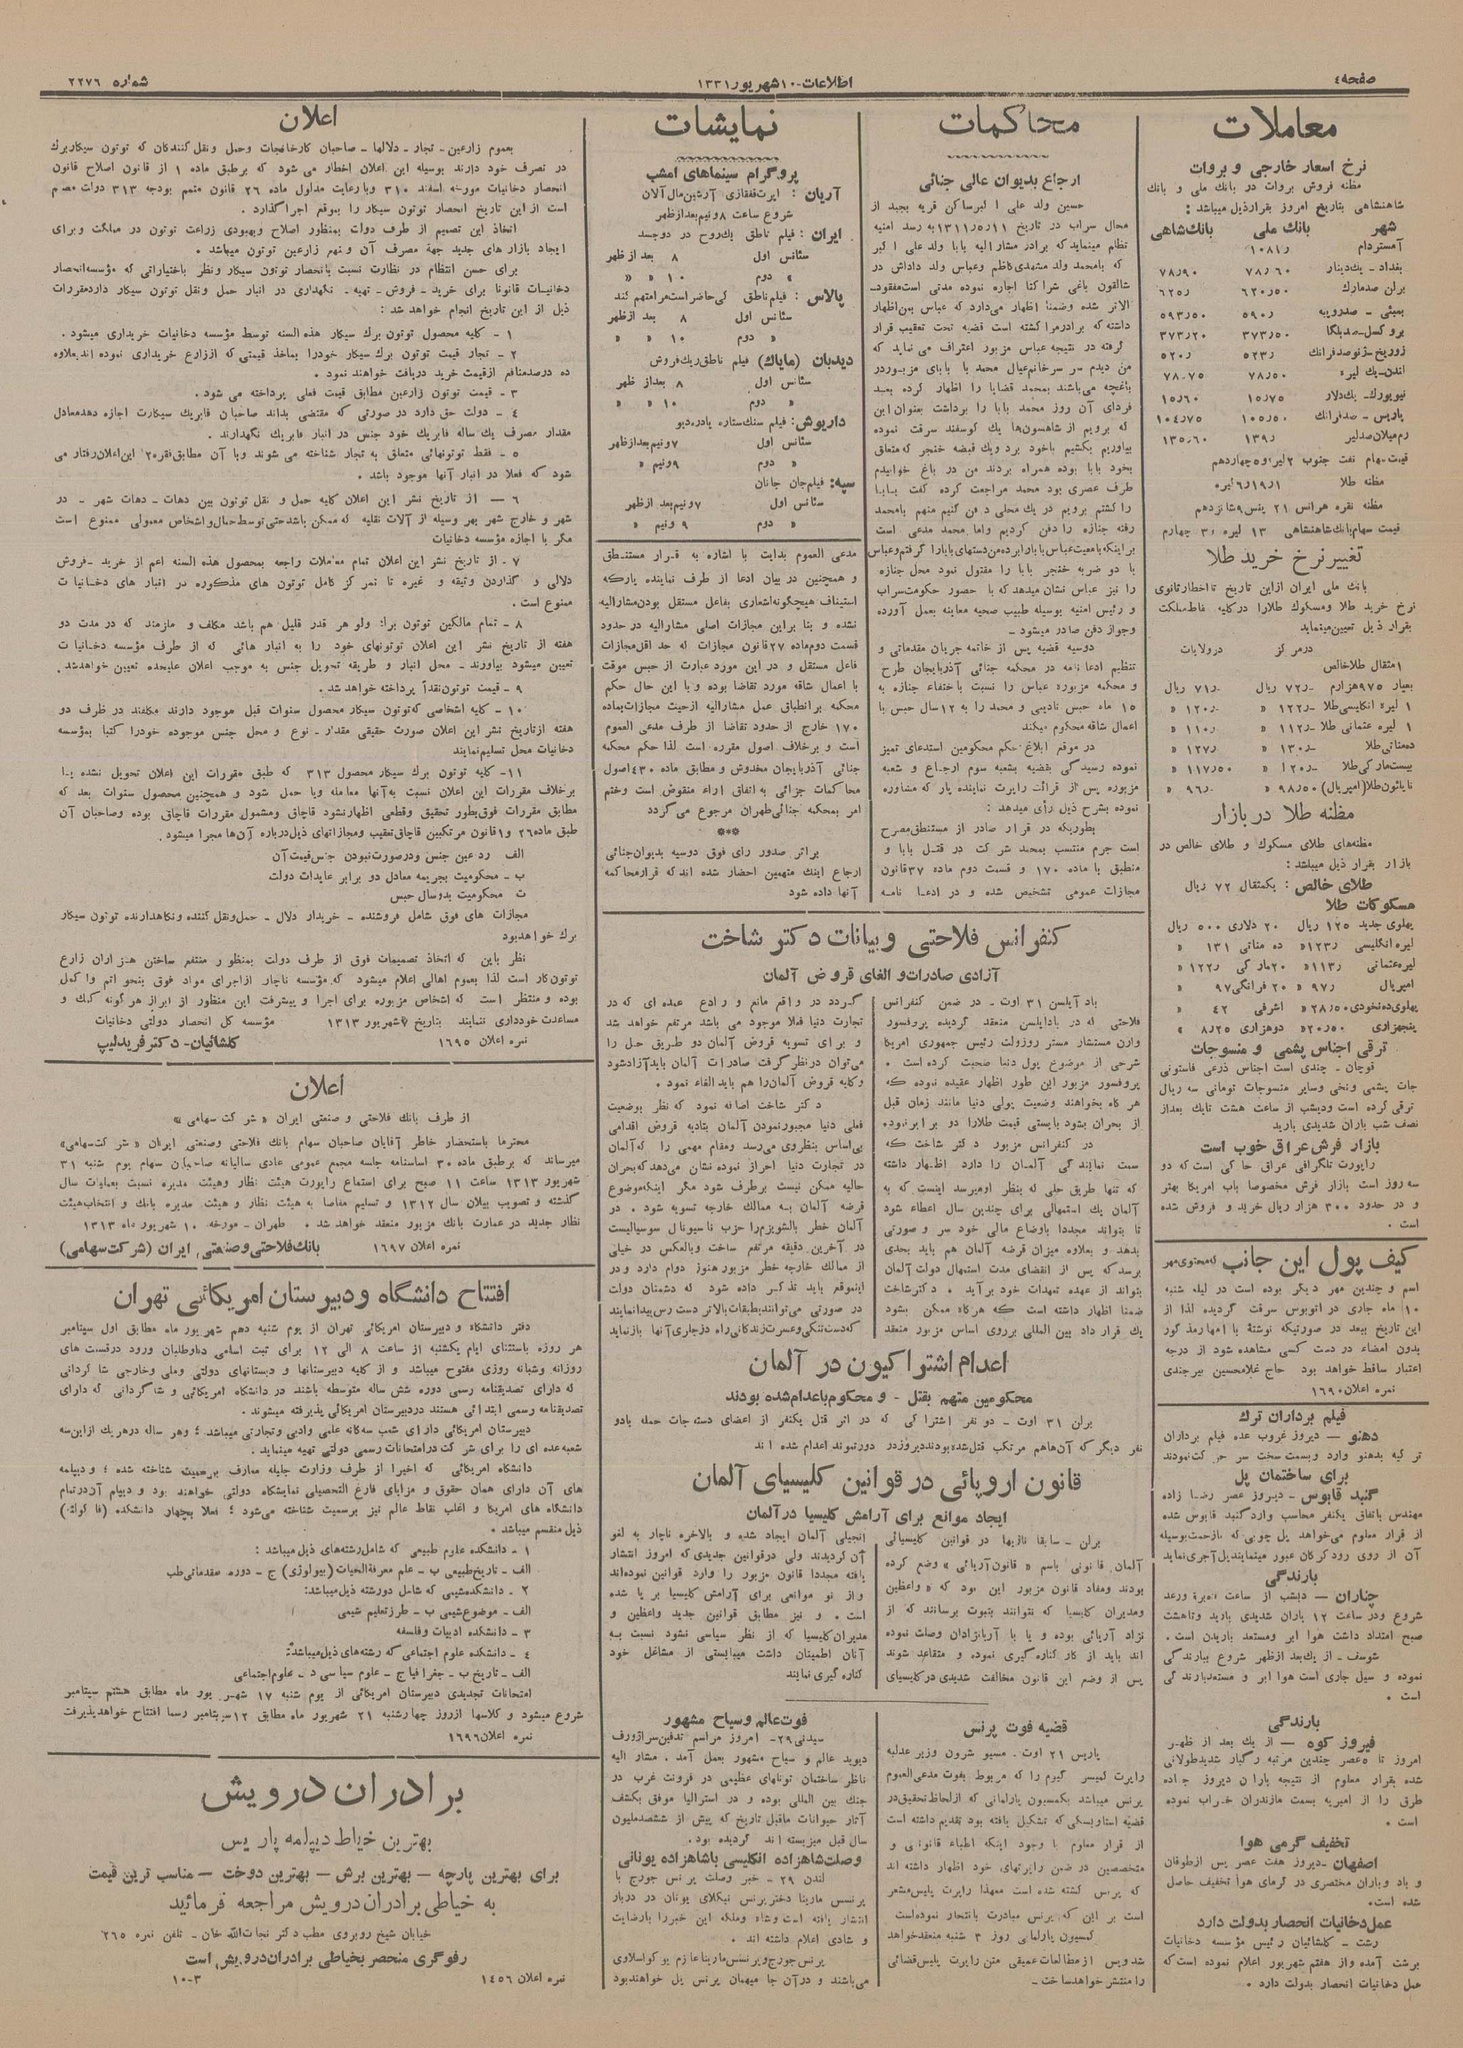 صفحه ٤
اطلاعات - ١٠ شهریور ١٣٣١
شماره ٢٢٧٦
معاملات
نرخ اسعار خارجی و بروات
مظنه فروش بروات در بانك ملی و بانك
شاهنشاهی بتاریخ امروز بقرار ذیل میباشد :
شهر بانك ملی بانك شاهی
آمستردام ١٠٨١ر
بغداد - یك دینار ٧٨ر٦٠ ٧٨ر٩٠
برلن صد مارك ٦٢٠ر٥٠ ٦٢٥ر
بمبئی - صد روپیه ٥٩٠ر ٥٩٣ر٥٠
بروکسل - صد بلگا ٣٧٣ر٥٠ ٣٧٣ر٢٠
زوریخ - ژنو صد فرانك ٥٢٣ر ٥٢٠ر
لندن - یك لیره ٧٨ر٥٠ ٧٨٠٧٥
نیویورك - یك دلار ١٥ر٧٥ ١٥ر٦٠
پاریس - صد فرانك ١٠٥ر٥٠ ١٠٤ر٧٥
رم میلان صد لیر ١٣٩ر ١٣٥ر٦٠
مظنه طلا ٦ر١٩ر١ لیره
قیمت سهام بانك شاهنشاهی ١٣ لیره و ٣ چهارم
تغییر نرخ خرید طلا
بانك ملی ایران از این تاریخ تا اخطار ثانوی
نرخ خرید طلا و مسكوك طلا را در کلیه نقاط مملکت
بقرار ذیل تعیین مینماید
در مرکز در ولایات
١ مثقال طلا خالص
بعیار ٩٧٥ هزارم ٧٢ر- ریال ٧١ر- ریال
١ لیره انگلیسی طلا ١٢٢ر- « ١٢٠ر- «
١ لیره عثمانی طلا ١١٢ر- « ١١٠ر- «
ده مناتی طلا ١٣٠ر- « ١٢٧ر- «
بیست مارکی طلا ١٢٠ر- « ١١٧ر٥٠ «
ناپلئون طلا (امپریال) ٩٨ر٥٠ « ٩٦ر- «
مظنه طلا در بازار
مظنه‌های طلای مسكوك و طلای خالص در
بازار بقرار ذیل میباشد :
طلای خالص : یکمثقال ٧٢ ریال
مسکوکات طلا
پهلوی جدید ١٢٥ ریال ٢٠ دلاری ٥٠٠ ریال
لیره انگلیسی ١٢٣ر « ده مناتی ١٣١ «
لیره عثمانی ١١٣ر « ٢٠ مارکی ١٢٢ر «
امپریال ٩٧ر « ٢٠ فرانکی ٩٧ «
پهلوی ده نخودی ٢٨ر٥٠ « اشرفی ٤٢ «
پنجهزاری ٢٠ر٥٠ « دوهزاری ٨ر٢٥ «
ترقی اجناس پشمی و منسوجات
قوچان - چندی است اجناس ذرعی فاستونی
جات پشمی و نخی و سایر منسوجات تومانی سه ریال
ترقی کرده است و دیشب از ساعت هشت تا یك بعد از
نصف شب باران شدیدی بارید
بازار فرش عراق خوب است
راپورت تلگرافی عراق حاکی است که دو
سه روز است بازار فرش مخصوصا باب امریکا بهتر
و در حدود ٣٠٠ هزار ریال خرید و فروش شده
است .
کیف پول این جانب که محتوی مهر
اسم و چندین مهر دیگر بوده است در لیله شنبه
١٠ ماه جاری در اتوبوس سرقت گردیده لذا از
این تاریخ ببعد در صورتیکه نوشتهٔ با امهار مذکور
بدون امضاء در دست کسی مشاهده شود از درجه
اعتبار ساقط خواهد بود حاج غلامحسین بیرجندی
نمره اعلان ١٦٩٠
فیلم برداران ترك
دهنو — دیروز غروب عده فیلم برداران
ترکیه بدهنو وارد و بسمت سخت سر حرکت نمودند
برای ساختمان پل
گنبد قابوس - دیروز عصر رضا زاده
مهندس باتفاق یکنفر محاسب وارد گنبد قابوس شده
از قرار معلوم می‌خواهد پل چوبی که بازحمت بوسیله
آن از روی رود گرگان عبور مینمایند پل آجری نماید
بارندگی
شروع و در ساعت ١٢ باران شدیدی بارید و تا هشت
صبح امتداد داشت هوا ابر و مستعد باریدن است .
شوسف - از یك بعد از ظهر شروع ببارندگی
نموده و سیل جاری است هوا ابر و مستعد بارندگی
است .
بارندگی
فیروز کوه — از یك بعد از ظهر
امروز تا ٥ عصر چندین مرتبه رگبار شدید طولانی
شده بقرار معلوم از نتیجه باران دیروز جاده
طرق را از امیریه بسمت مازندران خراب نموده
است .
تخفیف گرمی هوا
اصفهان - دیروز هفت عصر پس از طوفان
و باد و باران مختصری در گرمای هوا تخفیف حاصل
شده است .
عمل دخانیات انحصار بدولت دارد
رشت - گلشائیان رئیس مؤسسه دخانیات
برشت آمده و از هفتم شهریور اعلام نموده است که
عمل دخانیات انحصار بدولت دارد .
محاکمات
ارجاع بدیوان عالی جنائی
حسین ولد علی اکبر ساکن قریه بجبد از
محال سراب در تاریخ ١١ر٥ر١٣١١ به رسد امنیه
تظلم مینماید که برادر مشارالیه بابا ولد علی اکبر
که با محمد ولد مشهدی کاظم و عباس ولد داداش در
شالقون باغی شراکتا اجاره نموده مدتی است مفقود-
الاثر شده و ضمنا اظهار می‌دارد که عباس بمن اظهار
داشته که برادرم را کشته است قضیه تحت تعقیب قرار
گرفته در نتیجه عباس مزبور اعتراف می نماید که
من دیدم سر سرخانم عیال محمد با بابای مزبور در
باغچه می‌باشند بمحمد قضایا را اظهار کرده بعد
فردای آن روز محمد بابا را برداشت بعنوان این
که برویم از شاهسون‌ها یك گوسفند سرقت نموده
بیاوریم بکشیم باخود برد و یك قبضه خنجر که متعلق
بخود بابا بوده همراه بردند من در باغ خوابیدم
طرف عصری بود محمد مراجعت کرده گفت بابا
را کشتم برویم در یك محلی دفن کنیم منهم با محمد
رفته جنازه را دفن کردیم و اما محمد مدعی است
بر اینکه با معیت عباس با بابا رفته من دستهای بابا را گرفتم و عباس
با دو ضربه خنجر بابا را مقتول نمود محل جنازه
را نیز عباس نشان میدهد که با حضور حکومت سراب
و رئیس امنیه بوسیله طبیب صحیه معاینه بعمل آورده
و جواز دفن صادر میشود -
دوسیه قضیه پس از خاتمه جریان مقدماتی و
تنظیم ادعا نامه در محکمه جنائی آذربایجان طرح
و محکمه مزبوره عباس را نسبت باختفاء جنازه به
١٥ ماه حبس تادیبی و محمد را به ١٢ سال حبس با
اعمال شاقه محکوم میکند
در موقع ابلاغ حکم محکومین استدعای تمیز
نموده رسیدگی بقضیه بشعبه سوم ارجاع و شعبه
مزبوره پس از قرائت راپرت نماینده پارکه مشاوره
نموده بشرح ذیل رأی میدهد :
بطوریکه در قرار صادر از مستنطق مصرح
است جرم منتسب بمحمد شرکت در قتل بابا و
منطبق با ماده ١٧٠ و قسمت دوم ماده ٣٧ قانون
مجازات عمومی تشخیص شده و در ادعا نامه
نمایشات
پروگرام سینماهای امشب
آریان : اپرت قفقازی آرشین مال آلان
شروع ساعت ٨ و نیم بعد از ظهر
ایران : فیلم ناطق یك روح در دو جسد
سئانس اول ٨ بعد از ظهر
« دوم ١٠ « «
پالاس : فیلم ناطق کی حاضر است مرا متهم کند
سئانس اول ٨ بعد از ظهر
« دوم ١٠ « «
دیدبان (مایاك) فیلم ناطق ریك فروش
سئانس اول ٨ بعد از ظهر
« دوم ١٠ « «
داریوش : فیلم سنك ستاره یا دره دیو
سئانس اول ٧ و نیم بعد از ظهر
« دوم ٩ و نیم «
سپه : فیلم جان جانان
سئانس اول ٧ و نیم بعد از ظهر
« دوم ٩ و نیم «
مدعی العموم بدایت با اشاره به قرار مستنطق
و همچنین در بیان ادعا از طرف نماینده پارکه
استیناف هیچگونه اشعاری بفاعل مستقل بودن مشارالیه
نشده و بنا بر این مجازات اصلی مشارالیه در حدود
قسمت دوم ماده ٢٧ قانون مجازات که حد اقل مجازات
فاعل مستقل و در این مورد عبارت از حبس موقت
با اعمال شاقه مورد تقاضا بوده و با این حال حکم
محکمه بر انطباق عمل مشارالیه از حیث مجازات بماده
١٧٠ خارج از حدود تقاضا از طرف مدعی العموم
است و برخلاف اصول مقرره است لذا حکم محکمه
جنائی آذربایجان مخدوش و مطابق ماده ٤٣٠ اصول
محاکمات جزائی به اتفاق اراء منقوض است و ختم
امر بمحکمه جنائی طهران مرجوع می گردد
***
براثر صدور رای فوق دوسیه بدیوان جنائی
ارجاع اینك متهمین احضار شده اند که قرار محاکمه
آنها داده شود
کنفرانس فلاحتی و بیانات دکتر شاخت
آزادی صادرات و الغای قروض آلمان
باد آیلسن ٣١ اوت - در ضمن کنفرانس
فلاحتی که در بادایلسن منعقد گردیده پروفسور
وارن مستشار مستر روزولت رئیس جمهوری امریکا
شرحی از موضوع پول دنیا صحبت کرده است .
پروفسور مزبور این طور اظهار عقیده نموده که
هر گاه بخواهند وضعیت پولی دنیا مانند زمان قبل
از بحران بشود بایستی قیمت طلا را دو برابر نموده
در کنفرانس مزبور دکتر شاخت که
سمت نمایندگی آلمان را دارد اظهار داشته
که تنها طریق حلی که بنظر او میرسد اینست که به
آلمان یك استمهالی برای چندین سال اعطاء شود
تا بتواند مجددا باوضاع مالی خود سر و صورتی
بدهد و بعلاوه میزان قرضه آلمان هم باید بحدی
برسد که پس از انقضای مدت استمهال دولت آلمان
بتواند از عهده تعهدات خود برآید . دکتر شاخت
ضمنا اظهار داشته است که هرگاه ممکن بشود
یك قرار داد بین المللی بر روی اساس مزبور منعقد
گردد در واقع مانع و رادع عمده ای که در
تجارت دنیا فعلا موجود می باشد مرتفع خواهد شد
و برای تسویه قروض آلمان دو طریق حل را
می‌توان در نظر گرفت صادرات آلمان باید آزاد شود
و کلیه قروض آلمان را هم باید الغاء نمود .
دکتر شاخت اضافه نمود که نظر بوضعیت
فعلی دنیا مجبور نمودن آلمان بتادیه قروض اقدامی
بی‌اساس بنظر وی می‌رسد و مقام مهمی را که آلمان
در تجارت دنیا احراز نموده نشان می‌دهد که بحران
حالیه ممکن نیست برطرف شود مگر اینکه موضوع
قرضه آلمان به ممالك خارجه تسویه شود . در
آلمان خطر بالشویزم را حزب ناسیونال سوسیالیست
در آخرین دقیقه مرتفع ساخت و بالعکس در خیلی
از ممالك خارجه خطر مزبور هنوز دوام دارد و در
اینموقع باید تذکر داده شود که دشمنان دولت
در صورتی می‌توانند بطبقات بالاتر دست رس پیدا نمایند
که دست تنگی و عسرت زندگانی راه در جاری آنها باز نماید
اعدام اشتراکیون در آلمان
محکومین متهم بقتل - و محکوم باعدام شده بودند
برلن ٣١ اوت - دو نفر اشتراکی که در اثر قتل یکنفر از اعضای دستجات حمله بادو
نفر دیگر که آن‌ها هم مرتکب قتل شده بودند دیروز در دورتموند اعدام شده اند
قانون اروپائی در قوانین کلیسیای آلمان
ایجاد موانع برای آرامش کلیسیا در آلمان
برلن - سابقا نازیها در قوانین کلیسیائی
آلمان قانونی باسم « قانون آریائی » وضع کرده
بودند و مفاد قانون مزبور این بود که « واعظین
و مدیران کلیسیا که نتوانند بثبوت برسانند که از
نژاد آریائی بوده و یا با آریانژادان وصلت نموده
اند باید از کار کناره گیری نموده و متقاعد شوند
پس از وضع این قانون مخالفت شدیدی در کلیسیای
انجیلی آلمان ایجاد شده و بالاخره ناچار به لغو
آن گردیدند ولی در قوانین جدیدی که امروز انتشار
یافته مجددا قانون مزبور را وارد قوانین نموده‌اند
و از نو موانعی برای آرامش کلیسیا بر پا شده
است . و نیز مطابق قوانین جدید واعظین و
مدیران کلیسیا که از نظر سیاسی نشود نسبت به
آنان اطمینان داشت میبایستی از مشاغل خود
کناره گیری نمایند
قضیه فوت پرنس
پاریس ٢١ اوت . مسیو شرون وزیر عدلیه
راپرت کمیسر گیوم را که مربوط بفوت مدعی العموم
پرنس میباشد بکمسیون پارلمانی که از لحاظ تحقیق در
قضیه استاویسکی که تشکیل یافته بود تقدیم داشته است
از قرار معلوم با وجود اینکه اطباء قانونی و
متخصصین در ضمن راپرتهای خود اظهار داشته اند
که پرنس کشته شده است معهذا راپرت پلیس مشعر
است بر این که پرنس مبادرت بانتحار نموده است
کمسیون پارلمانی روز ٤ شنبه منعقد خواهد
شد و پس از مطالعات عمیقی متن راپرت پلیس قضائی
را منتشر خواهد ساخت .
فوت عالم و سیاح مشهور
سیدنی ٢٩ - امروز مراسم تدفین سر اژورف
دیوید عالم و سیاح مشهور بعمل آمد . مشار الیه
ناظر ساختمان تونلهای عظیمی در فرونت غرب در
جنك بین المللی بوده و در استرالیا موفق بکشف
آثار حیوانات ماقبل تاریخ که پیش از ششصد ملیون
سال قبل میزیسته اند گردیده بود .
وصلت شاهزاده انگلیسی با شاهزاده یونانی
لندن ٢٩ - خبر وصلت پرنس جورج با
پرنسس مارینا دختر پرنس نیکلای یونان در دربار
انتشار یافته است و شاه و ملکه این خبر را با رضایت
و شادی اعلام داشته اند .
پرنس جورج و پرنسس مارینا عازم یوگواسلاوی
می‌باشند و در آن جا میهمان پرنس پل خواهند بود
اعلان
بعموم زارعین - تجار - دلالها - صاحبان کارخانجات و حمل و نقل کنندگان که توتون سیکار برك
در تصرف خود دارند بوسیله این اعلان اخطار می شود که برطبق ماده ١ از قانون اصلاح قانون
انحصار دخانیات مورخه اسفند ٣١٠ و با رعایت مدلول ماده ٢٦ قانون متمم بودجه ٣١٣ دولت مصمم
است از این تاریخ انحصار توتون سیکار را بموقع اجرا گذارد .
اتخاذ این تصمیم از طرف دولت بمنظور اصلاح و بهبودی زراعت توتون در مملکت و برای
ایجاد بازار های جدید جهة مصرف آن و نفع زارعین توتون میباشد .
برای حسن انتظام در نظارت نسبت بانحصار توتون سیکار و نظر باختیاراتی که مؤسسه انحصار
دخانیات قانونا برای خرید - فروش - تهیه - نگهداری در انبار حمل و نقل توتون سیکار دارد مقررات
ذیل از این تاریخ انجام خواهد شد :
١ - کلیه محصول توتون برك سیکار هذه السنه توسط مؤسسه دخانیات خریداری میشود .
٢ - تجار قیمت توتون برك سیکار خود را بمأخذ قیمتی که از زارع خریداری نموده اند بعلاوه
ده درصد منافع از قیمت خرید دریافت خواهند نمود .
٣ - قیمت توتون زارعین مطابق قیمت فعلی پرداخته می شود .
٤ - دولت حق دارد در صورتی که مقتضی بداند صاحبان فابریك سیکارت اجازه دهد معادل
مقدار مصرف یك ساله فابریك خود جنس در انبار فابریك نگهدارند .
٥ - فقط توتونهائی متعلق به تجار شناخته می شوند و با آن مطابق فقره ٢ این اعلان رفتار می
شود که فعلا در انبار آنها موجود باشد .
٦ - از تاریخ نشر این اعلان کلیه حمل و نقل توتون بین دهات - دهات شهر - در
شهر و خارج شهر بهر وسیله از آلات نقلیه که ممکن باشد حتی توسط حمال و اشخاص معمولی ممنوع است
مگر با اجازه مؤسسه دخانیات
٧ - از تاریخ نشر این اعلان تمام معاملات راجعه بمحصول هذه السنه اعم از خرید - فروش
دلالی و گذاردن وثیقه و غیره تا تمرکز کامل توتون های مذکوره در انبار های دخانیات
ممنوع است .
٨ - تمام مالکین توتون برك ولو هر قدر قلیل هم باشد مکلف و ملزمند که در مدت دو
هفته از تاریخ نشر این اعلان توتونهای خود را به انبار هائی که از طرف مؤسسه دخانیات
تعیین میشود بیاورند - محل انبار و طریقه تحویل جنس به موجب اعلان علیحده تعیین خواهد شد.
٩ - قیمت توتون نقداً پرداخته خواهد شد .
١٠ - کلیه اشخاصی که توتون سیکار محصول سنوات قبل موجود دارند مکلفند در ظرف دو
هفته از تاریخ نشر این اعلان صورت حقیقی مقدار - نوع و محل جنس موجوده خود را کتبا بمؤسسه
دخانیات محل تسلیم نمایند
١١ - کلیه توتون برك سیکار محصول ٣١٣ که طبق مقررات این اعلان تحویل نشده یا
برخلاف مقررات این اعلان نسبت به آنها معامله و یا حمل شود و همچنین محصول سنوات بعد که
مطابق مقررات فوق بطور تحقیق و قطعی اظهار نشود قاچاق و مشمول مقررات قاچاق بوده و صاحبان آن
طبق ماده ٢٦ و ١ قانون مرتکبین قاچاق تعقیب و مجازاتهای ذیل درباره آن‌ها مجرا میشود .
الف رد عین جنس و در صورت نبودن جنس قیمت آن
ب - محکومیت بجریمه معادل دو برابر عایدات دولت
ت محکومیت بدو سال حبس
مجازات های فوق شامل فروشنده - خریدار دلال - حمل و نقل کننده و نگاهدارنده توتون سیکار
برك خواهد بود
نظر باین که اتخاذ تصمیمات فوق از طرف دولت بمنظور منتفع ساختن هزاران زارع
توتون کار است لذا بعموم اهالی اعلام میشود که مؤسسه ناچار از اجرای مواد فوق بنحو اتم و اکمل
بوده و منتظر است که اشخاص مزبوره برای اجرا و پیشرفت این منظور از ابراز هر گونه کمك و
مساعدت خودداری ننمایند بتاریخ ٩ شهریور ١٣١٣ مؤسسه کل انحصار دولتی دخانیات
نمره اعلان ١٦٩٥ گلشائیان - دکتر فریدلیب
اعلان
از طرف بانك فلاحتی و صنعتی ایران « شرکت سهامی »
محترما باستحضار خاطر آقایان صاحبان سهام بانك فلاحتی و صنعتی ایران « شرکت سهامی»
میرساند که برطبق ماده ٣٠ اساسنامه جلسه مجمع عمومی عادی سالیانه صاحبان سهام یوم شنبه ٣١
شهریور ١٣١٣ ساعت ١١ صبح برای استماع راپورت هیئت نظار و هیئت مدیره نسبت بعملیات سال
گذشته و تصویب بیلان سال ١٣١٢ و تسلیم مفاصا به هیئت نظار و هیئت مدیره بانك و انتخاب هیئت
نظار جدید در عمارت بانك مزبور منعقد خواهد شد . طهران - مورخه ١٠ شهریور ماه ١٣١٣
نمره اعلان ١٦٩٧ بانك فلاحتی و صنعتی ایران (شرکت سهامی)
افتتاح دانشگاه و دبیرستان امریکائی تهران
دفتر دانشگاه و دبیرستان امریکائی تهران از یوم شنبه دهم شهریور ماه مطابق اول سپتامبر
هر روزه باستثنای ایام یکشنبه از ساعت ٨ الی ١٢ برای ثبت اسامی داوطلبان ورود در قسمت های
روزانه و شبانه روزی مفتوح میباشد و از کلیه دبیرستانها و دبستانهای دولتی و ملی و خارجی شاگردانی
که دارای تصدیقنامه رسمی دوره شش ساله متوسطه باشند در دانشگاه امریکائی و شاگردانی که دارای
تصدیقنامه رسمی ابتدائی هستند در دبیرستان امریکائی پذیرفته میشوند .
دبیرستان امریکائی دارای شعب سه گانه علمی و ادبی و تجارتی میباشد ؛ و هر ساله در هر یك از این سه
شعبه عده ای را برای شرکت در امتحانات رسمی دولتی تهیه مینماید .
دانشگاه امریکائی که اخیرا از طرف وزارت جلیله معارف برسمیت شناخته شده ؛ و دیپلمه
های آن دارای همان حقوق و مزایای فارغ التحصیلی دانشگاه دولتی خواهند بود و دیپلم آن در تمام
دانشگاه های امریکا و اغلب نقاط عالم نیز برسمیت شناخته می‌شود ؛ فعلا بچهار دانشکده (فاکولته)
ذیل منقسم میباشد .
١ - دانشکده علوم طبیعی که شامل رشته‌های ذیل میباشد :
الف - تاریخ طبیعی ب - علم معرفة الحیات (بیولوژی) ج - دوره مقدماتی طب
٢ - دانشکده شیمی که شامل دو رشته ذیل میباشد:
الف - موضوع شیمی ب - طرز تعلیم شیمی
٣ - دانشکده ادبیات و فلسفه
٤ - دانشکده علوم اجتماعی که رشته های ذیل میباشد:
الف - تاریخ ب - جغرافیا ج - علوم سیاسی د - علوم اجتماعی
امتحانات تجدیدی دبیرستان امریکائی از یوم شنبه ١٧ شهریور ماه مطابق هشتم سپتامبر
شروع میشود و کلاسها از روز چهارشنبه ٢١ شهریور ماه مطابق ١٢ سپتامبر رسما افتتاح خواهد پذیرفت
نمره اعلان ١٦٩٦
برادران درویش
بهترین خیاط دیپلمه پاریس
برای بهترین پارچه — بهترین برش — بهترین دوخت — مناسب ترین قیمت
به خیاطی برادران درویش مراجعه فرمائید
خیابان شیخ روبروی مطب دکتر نجات الله خان - تلفن نمره ٢٦٥
رفوگری منحصر بخیاطی برادران درویش است
نمره اعلان ١٤٥٦ ٣-١٠